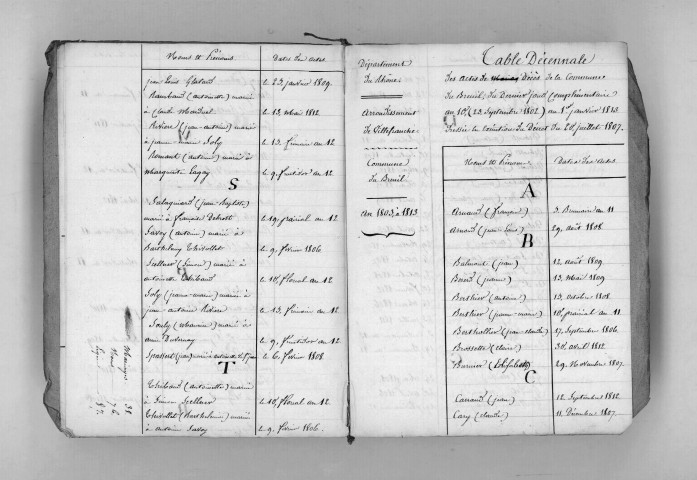 Noms et Prénoms Dates des actes
jean Louis
Rambaud (antoinette) mariée le 23. janvier 1809.
à Claude
Rivière (jean-antoine) marié le 13. mai 1812.
à jeanne marie Joly le 13. frimaire an 12
Romant (antoine) marié à
Marguerite le 9. fructidor an 12
S
(jean Baptiste)
marié à françoise le 19. prairial an 12
Savoy (antoine) marié à
Barthelemy Thevollet le 9. février 1806.
Sellier (Simon) marié à
antoinette Thibaud le 18. floréal an 12
Joly (jeanne-marie) mariée à
jean antoine Rivière le 13. frimaire an 12
marié à
le 9. fructidor an 12
(jean) marié à le 6. février 1808
T
Thibaud (antoinette) mariée
à Simon Sellier le 18. floréal an 12
Thevollet (Barthelemi) marié
à antoine Savoy le 9. février 1806.
Mariages 38
Département
du Rhône.
Arrondissement
de Villefranche.
Commune
du Breuil.
An 1803, à 1813
Table Décennale
Des actes de Décès de la Commune
du Breuil, du Dernier jour Complémentaire
an 10, (23. Septembre 1802) au 1er janvier 1813.
Dressée en exécution du Décret du 20 juillet 1807.
Noms et Prénoms Dates des actes
A
Arnaud (françoise) 3. Brumaire an 11
Arnaud (jean Louis) 29. août 1808
B
Balmont (jean) 12. août 1809
(jeanne) 13. mai 1809
Berthier (antoine) 13. octobre 1808.
Berthier (jeanne-marie) 10. prairial an 11
Berthollier (jean-claude) 17. Septembre 1806.
Brossette (claire) 30. avril 1812.
(Elisabeth) 29. Novembre 1807.
C
Carraud (jean) 12. Septembre 1812
(claude) 11. Décembre 1807.